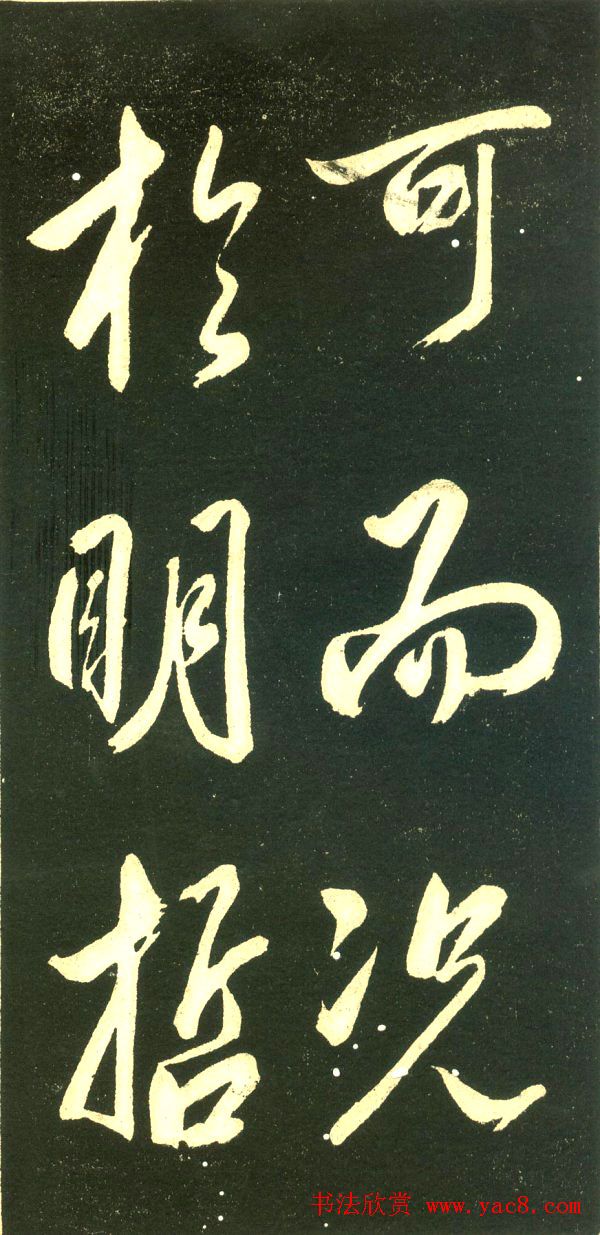 可而况
於明哲
书法欣赏 www.yac8.com